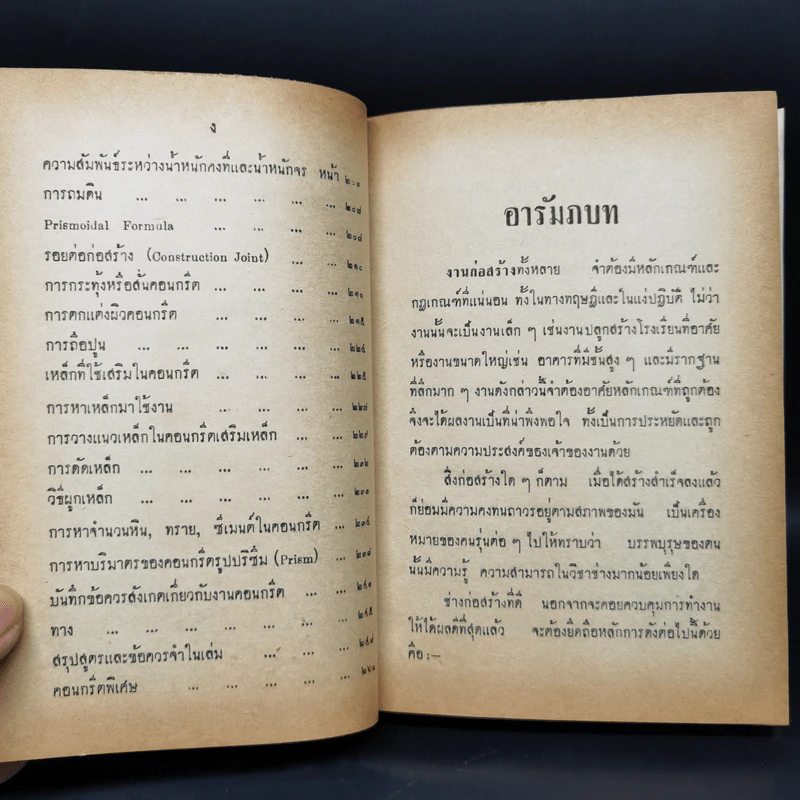 ง
ความสัมพันธ์ระหว่างน้ำหนักคงที่และน้ำหนักจร หน้า ๒๐๓
การถมดิน ... ... ... ... ... ... ๒๐๗
Prismoidal Formula ... ... ... ... ๒๐๗
รอยต่อก่อสร้าง (Construction Joint) ... ... ๒๑๐
การกระทุ้งหรือสั่นคอนกรีต ... ... ... ... ๒๑๐
การตกแต่งผิวคอนกรีต ... ... ... ... ๒๑๕
การถือปูน ... ... ... ... ... ... ๒๒๔
เหล็กที่ใช้เสริมในคอนกรีต ... ... ... ... ๒๒๕
การหาเหล็กมาใช้งาน ... ... ... ... ๒๒๗
การวางแนวเหล็กในคอนกรีตเสริมเหล็ก ... ... ๒๒๙
การดัดเหล็ก ... ... ... ... ... ๒๓๒
วิธีผูกเหล็ก ... ... ... ... ... ๒๓๓
การหาจำนวนหิน, ทราย, ซีเมนต์ในคอนกรีต ... ...
การหาบริมาตรของคอนกรีตรูปปริซิม (Prism) ... ๒๓๗
บันทึกข้อควรสังเกตเกี่ยวกับงานคอนกรีต ... ... ๒๔๑
ทาง ... ... ... ... ... ... ๒๔๕
สรุปสูตรและข้อควรจำในเล่ม ... ... ...
คอนกรีตพิเศษ ... ... ... ... ...
อารัมภบท
งานก่อสร้างทั้งหลาย จำต้องมีหลักเกณฑ์และ
กฎเกณฑ์ที่แน่นอน ทั้งในทางทฤษฎีและในแง่ปฏิบัติ ไม่ว่า
งานนั้นจะเป็นงานเล็ก ๆ เช่นงานปลูกสร้างโรงเรียนที่อาศัย
หรืองานขนาดใหญ่เช่น อาคารที่มีชั้นสูง ๆ และมีรากฐาน
ที่ลึกมาก ๆ งานดังกล่าวนี้จำต้องอาศัยหลักเกณฑ์ที่ถูกต้อง
จึงจะได้ผลงานเป็นที่น่าพึงพอใจ ทั้งเป็นการประหยัดและถูก
ต้องตามความประสงค์ของเจ้าของงานด้วย
สิ่งก่อสร้างใด ๆ ก็ตาม เมื่อได้สร้างสำเร็จลงแล้ว
ก็ย่อมมีความคงทนถาวรอยู่ตามสภาพของมัน เป็นเครื่อง
หมายของคนรุ่นต่อ ๆ ไปให้ทราบว่า บรรพบุรุษของตน
นั้นมีความรู้ ความสามารถในวิชาช่างมากน้อยเพียงใด
ช่างก่อสร้างที่ดี นอกจากจะคอยควบคุมการทำงาน
ให้ได้ผลดีที่สุดแล้ว จะต้องยึดถือหลักการดังต่อไปนี้ด้วย
คือ :—